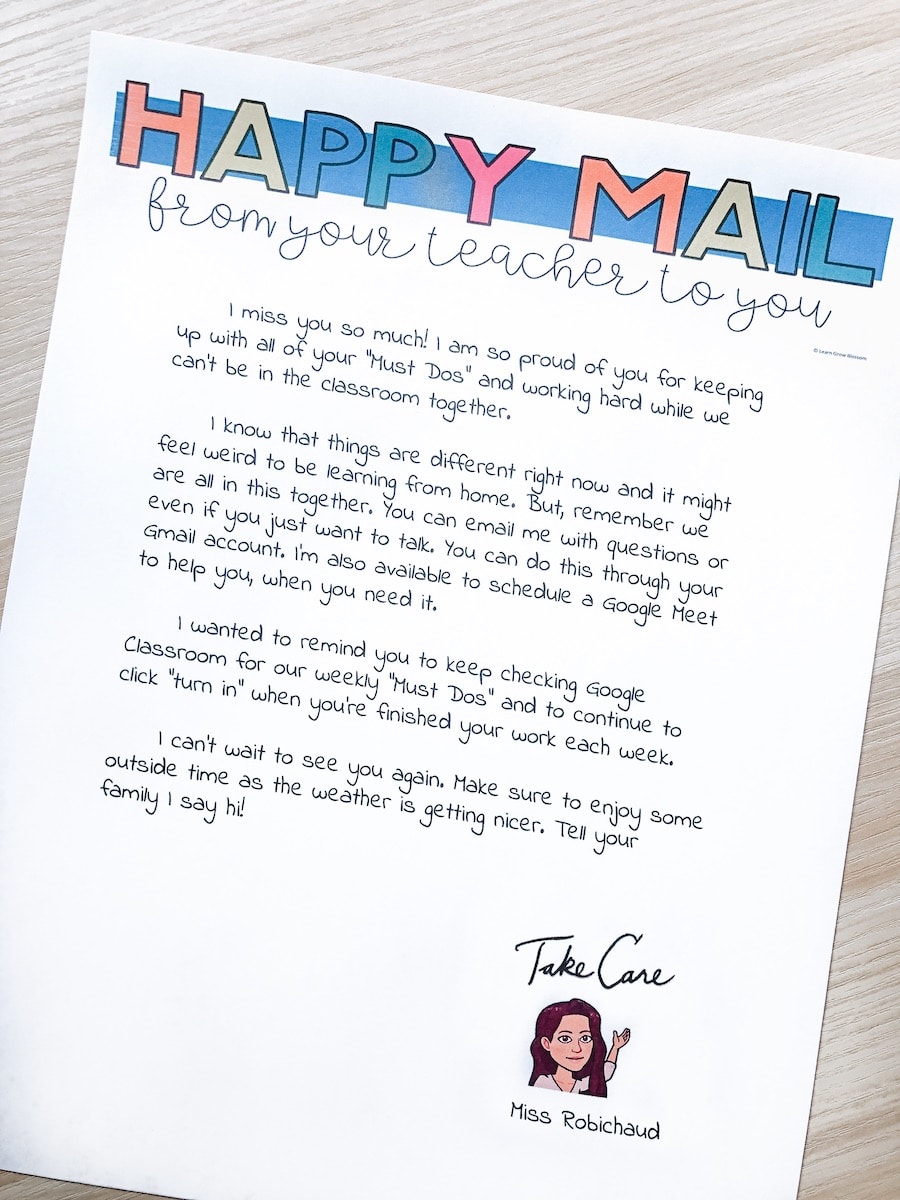 HAPPY MAIL
from your teacher to you
© Learn Grow Blossom
I miss you so much! I am so proud of you for keeping
up with all of your "Must Dos" and working hard while we
can't be in the classroom together.
I know that things are different right now and it might
feel weird to be learning from home. But, remember we
are all in this together. You can email me with questions or
even if you just want to talk. You can do this through your
Gmail account. I'm also available to schedule a Google Meet
to help you, when you need it.
I wanted to remind you to keep checking Google
Classroom for our weekly "Must Dos" and to continue to
click "turn in" when you're finished your work each week.
I can't wait to see you again. Make sure to enjoy some
outside time as the weather is getting nicer. Tell your
family I say hi!
Take Care
Miss Robichaud